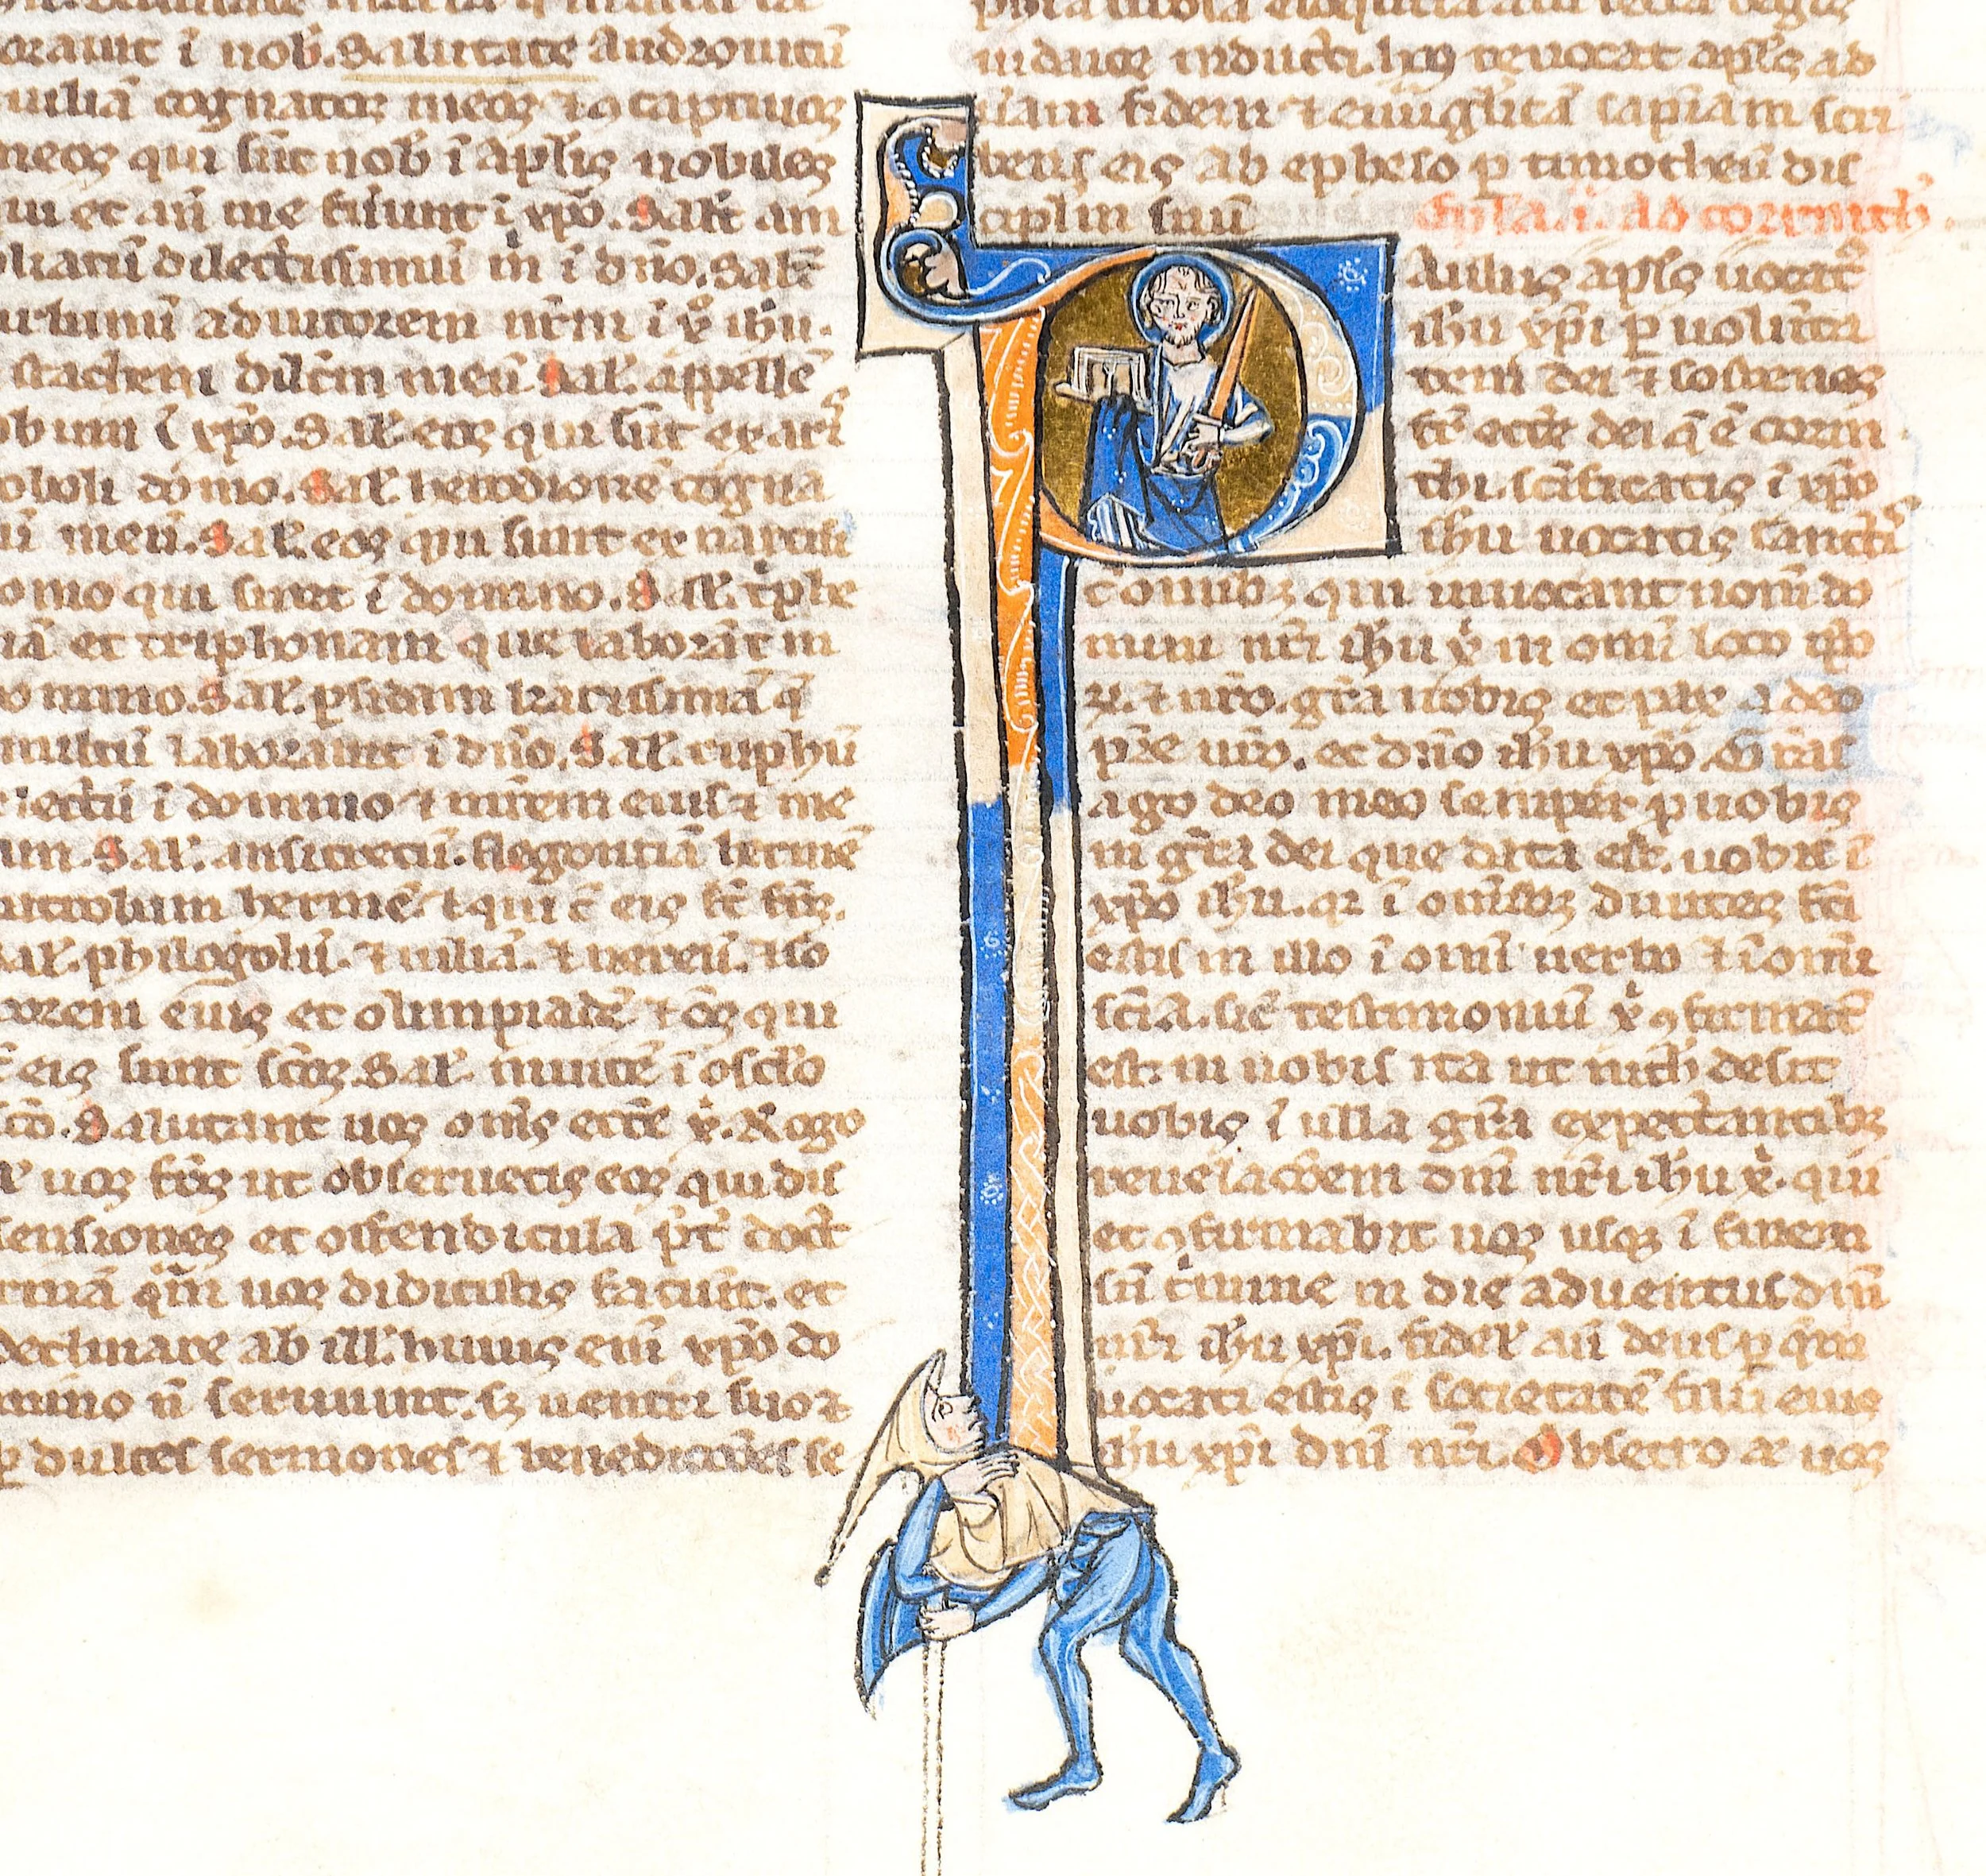 orauit ī nob. Salutate andronicū
iuliā cognatos meos ⁊ ꝯcaptiuos
meos qui sūt nob̄ ī aplīs nobiles
qui et an̄ me fuerunt ī xpō. Salt̄ am
pliatū dilectissimū m̄ ī dn̄o. Salt̄
urbanū adiutorem nr̄m ī xᵒ ihu.
stachem dilc̄m meū. Sal. appellē
obum ī xpō. Sal. eos qui sūt ex arī
oboli domo. Sal. herodionē cogna
tū meū. Sal. eos qui sunt ex narcisi
domo qui sunt ī domino. Sal. tͥphe
nā et triphonam que laborāt in
domino. Sal. ꝑsidam karissimā q̄
multū laborauit ī dn̄o. Sal. ruphū
electū ī domino ⁊ mr̄em eius ⁊ me
am. Sal. ansicretū. flegontiā hermē
patrobam hermē. ⁊ qui c̄ eis st̄ frs̄.
Sal. philogolū. ⁊ iuliā. ⁊ nereū. ⁊ so
rorem eius et olimpiadē ⁊ om̄s qui
c̄ eis sunt sc̄os. Sal. inuicē ī osclō
sc̄o. Salutant uos om̄s eccl̄e xͥ. Rogo
uos frs̄ ut obseruetis eos qui dis
sensiones et offendicula p̄t̄ doct̄
rinā qm̄ uos didicistis faciūt. et
declinate ab ill. huius em̄ xpō do
mino n̄ seruiunt. sꝫ uentri suo ⁊
ꝑ dulces sermones ⁊ benedict̄oēs se
phia uerbosa eloquentia alii secta legis
iudaice inducti. hos reuocat apls̄ ad
ueram fidem ⁊ euuāglicā sapiam scri
bens eis ab epheso ꝑ timotheū dis
ciplm̄ suū
Epl̄a .i. ad corinth̄.
Aulus apls̄ uocatꝰ
ihu xpi ꝑ uolunta
tem dei ⁊ sostenes
fr̄ eccl̄e dei q̄ ē corin
thi. scīficatis ī xpō
ihu uocatis sanctis
c̄ omibꝫ qui inuocant nom̄ do
mini nr̄i ihu xͥ in om̄i loco ip̄o
ꝝ. ⁊ nr̄o. gr̄a uobis et pax a deo
pr̄e nr̄o. et dn̄o ihu xpō. Gr̄as
ago deo meo semper ꝓ uobis
in gr̄a dei que data est uobis ī
xpō ihu. qꝛ ī om̄ibꝫ diuites fc̄i
estis in illo ī om̄i uerbo ⁊ ī om̄i
scīa. sic̄ testimoniū xͥ ꝯfirmatū
est in uobis ita ut nich̄ desit
uobis ī ulla gr̄a expectantibꝫ
reuelac̄oem dn̄i nr̄i ihu xͥ. qui
et ꝯfirmabit uos usqꝫ ī finem
sn̄ cͥmine in die aduentus dn̄i
nr̄i ihu xpi. fidel̄ aū deus ꝑ qm̄
uocati estis ī societatē filii eius
ihu xpi dn̄i nr̄i. Obsecro æ uos